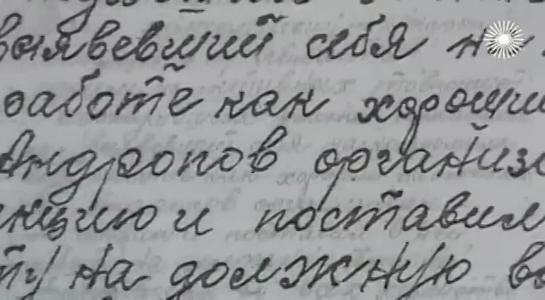 выявевший себя на
работе как хороши
Андропов организ
кцию и поставил
ту на должную вы